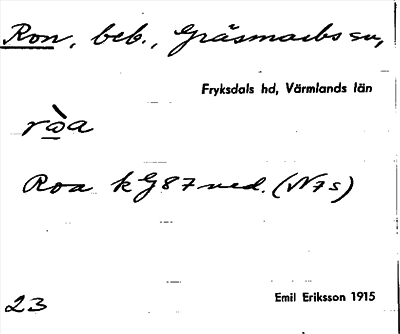 Ron, beb., Gräsmarks sn,
Fryksdals hd, Värmlands län
ròa
Roa kG87ned. (N7s)
23
Emil Eriksson 1915